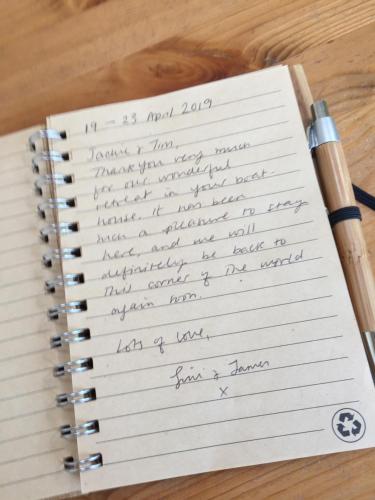 19 – 23 April 2019
Jackie & Tim,
Thank you very much
for our wonderful
retreat in your boat-
house. It has been
such a pleasure to stay
here, and we will
definitely be back to
this corner of the world
again soon.
Lots of love,
& James
x